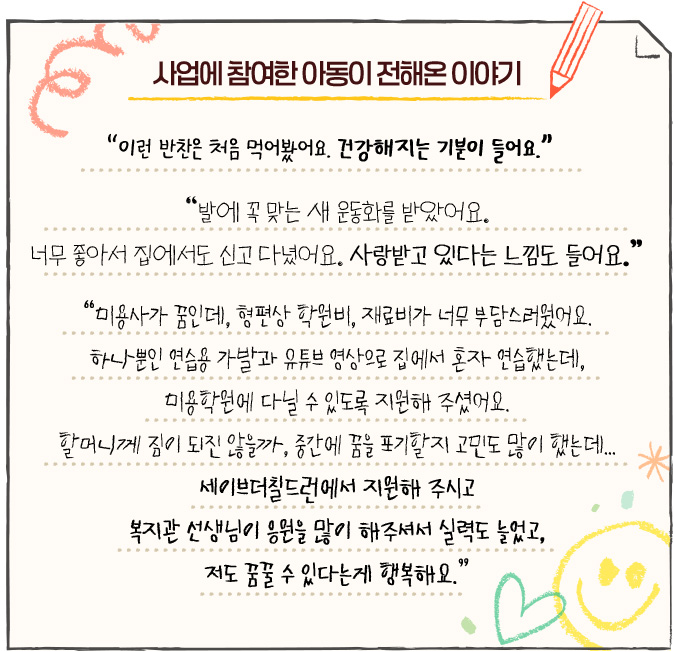 사업에 참여한 아동이 전해온 이야기
“이런 반찬은 처음 먹어봤어요. 건강해지는 기분이 들어요.”
“발에 꼭 맞는 새 운동화를 받았어요.
너무 좋아서 집에서도 신고 다녔어요. 사랑받고 있다는 느낌도 들어요.”
“미용사가 꿈인데, 형편상 학원비, 재료비가 너무 부담스러웠어요.
하나뿐인 연습용 가발과 유튜브 영상으로 집에서 혼자 연습했는데,
미용학원에 다닐 수 있도록 지원해 주셨어요.
할머니께 짐이 되진 않을까, 중간에 꿈을 포기할지 고민도 많이 했는데...
세이브더칠드런에서 지원해 주시고
복지관 선생님이 응원을 많이 해주셔서 실력도 늘었고,
저도 꿈꿀 수 있다는게 행복해요.”